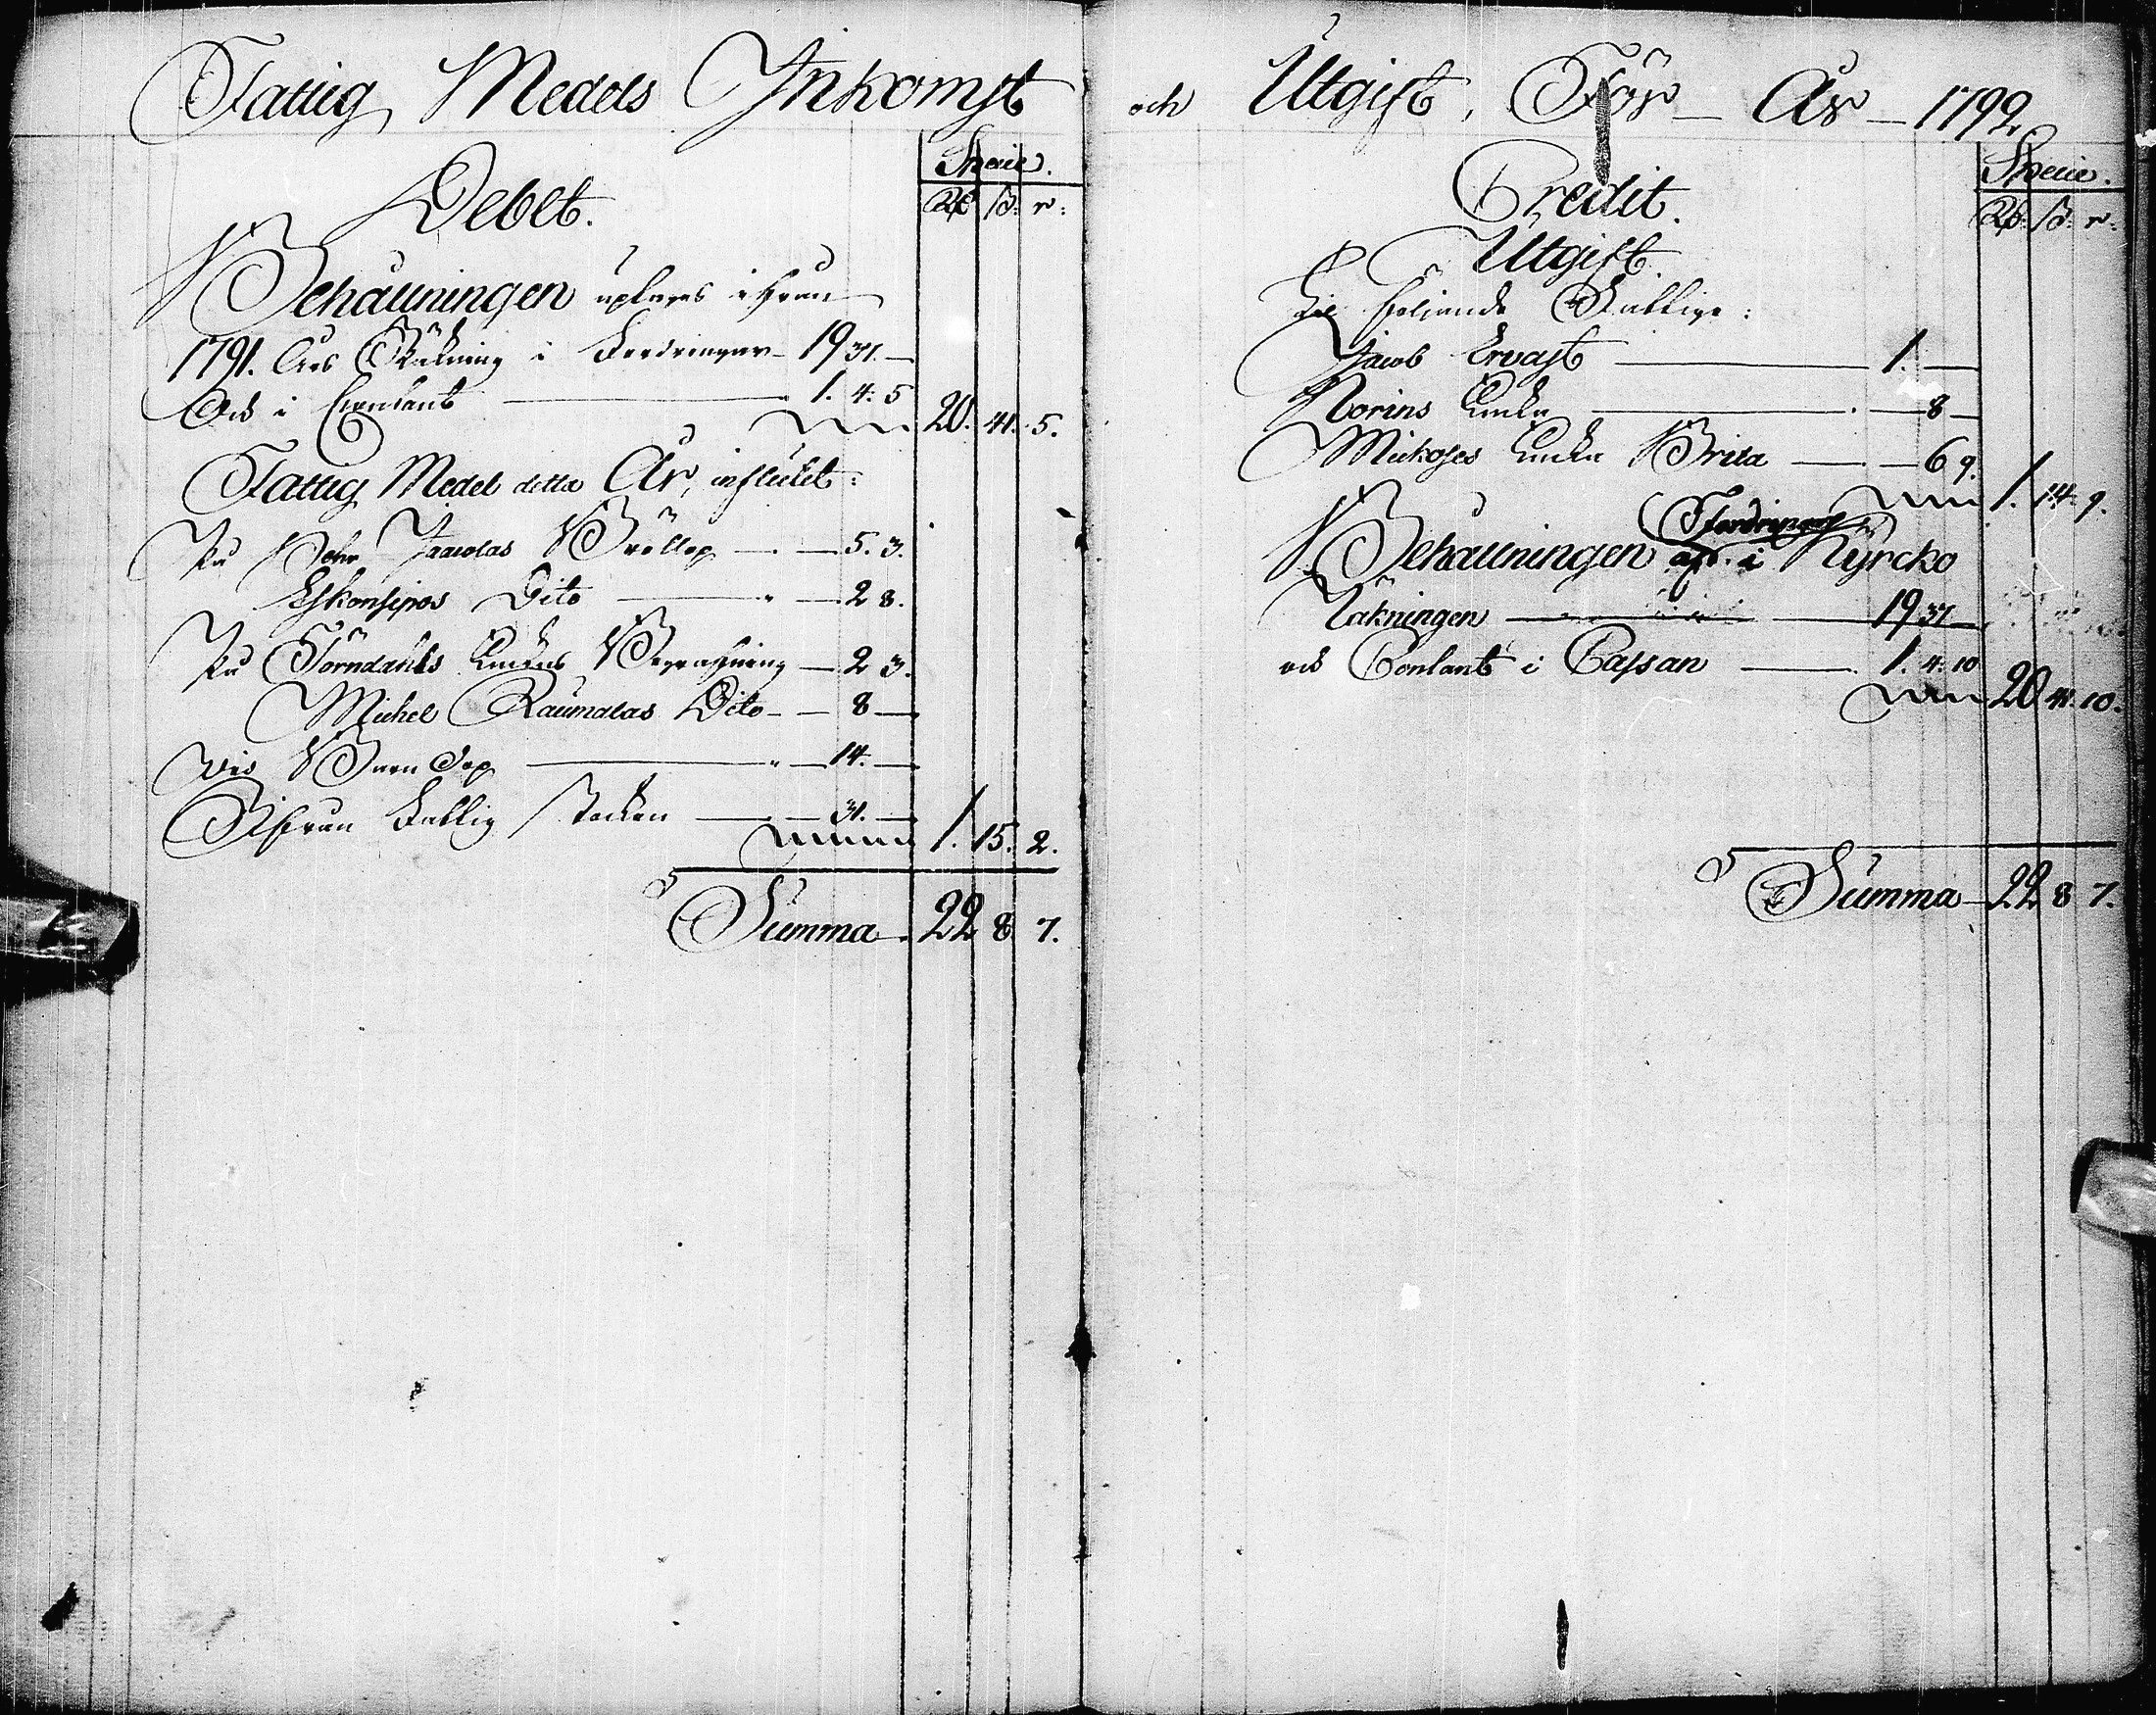 Fattig Medels Inkomst
Debet.
Specie.
Rd ß: r:
Behållningen uplagas ifrån
1791. Års Räkning i Fordringar 19 37. —
Och i Contant — 1. 4: 5
20. 41. 5.
Fattig Medel detta År, influtet:
På Johan Jaacolas Bröllop — 5. 3.
Eskonsipos Dito — 2 8.
På Törndahls Enckas Begrafning — 2 3.
Michel Raumalas Dito — 8 —
Wid Barn Dop — 14. —
Ifrån Fattig Stocken — 31. —
1. 15. 2.
Summa 22 8 7.
och Utgift, För — År — 1792
Credit.
Specie.
Rd: ß: r:
Utgift.
Til följande Fattige:
Jacob Ervast — 1. —
Norins Enka — 8 —
Mickoses Enka Brita — 6 9.
1. 14. 9.
Fordringar
Behållningen i Kyrcko
Räkningen — 19 37 —
och Contant i Cassan — 1. 4: 10
20 41. 10.
Summa 22 8 7.